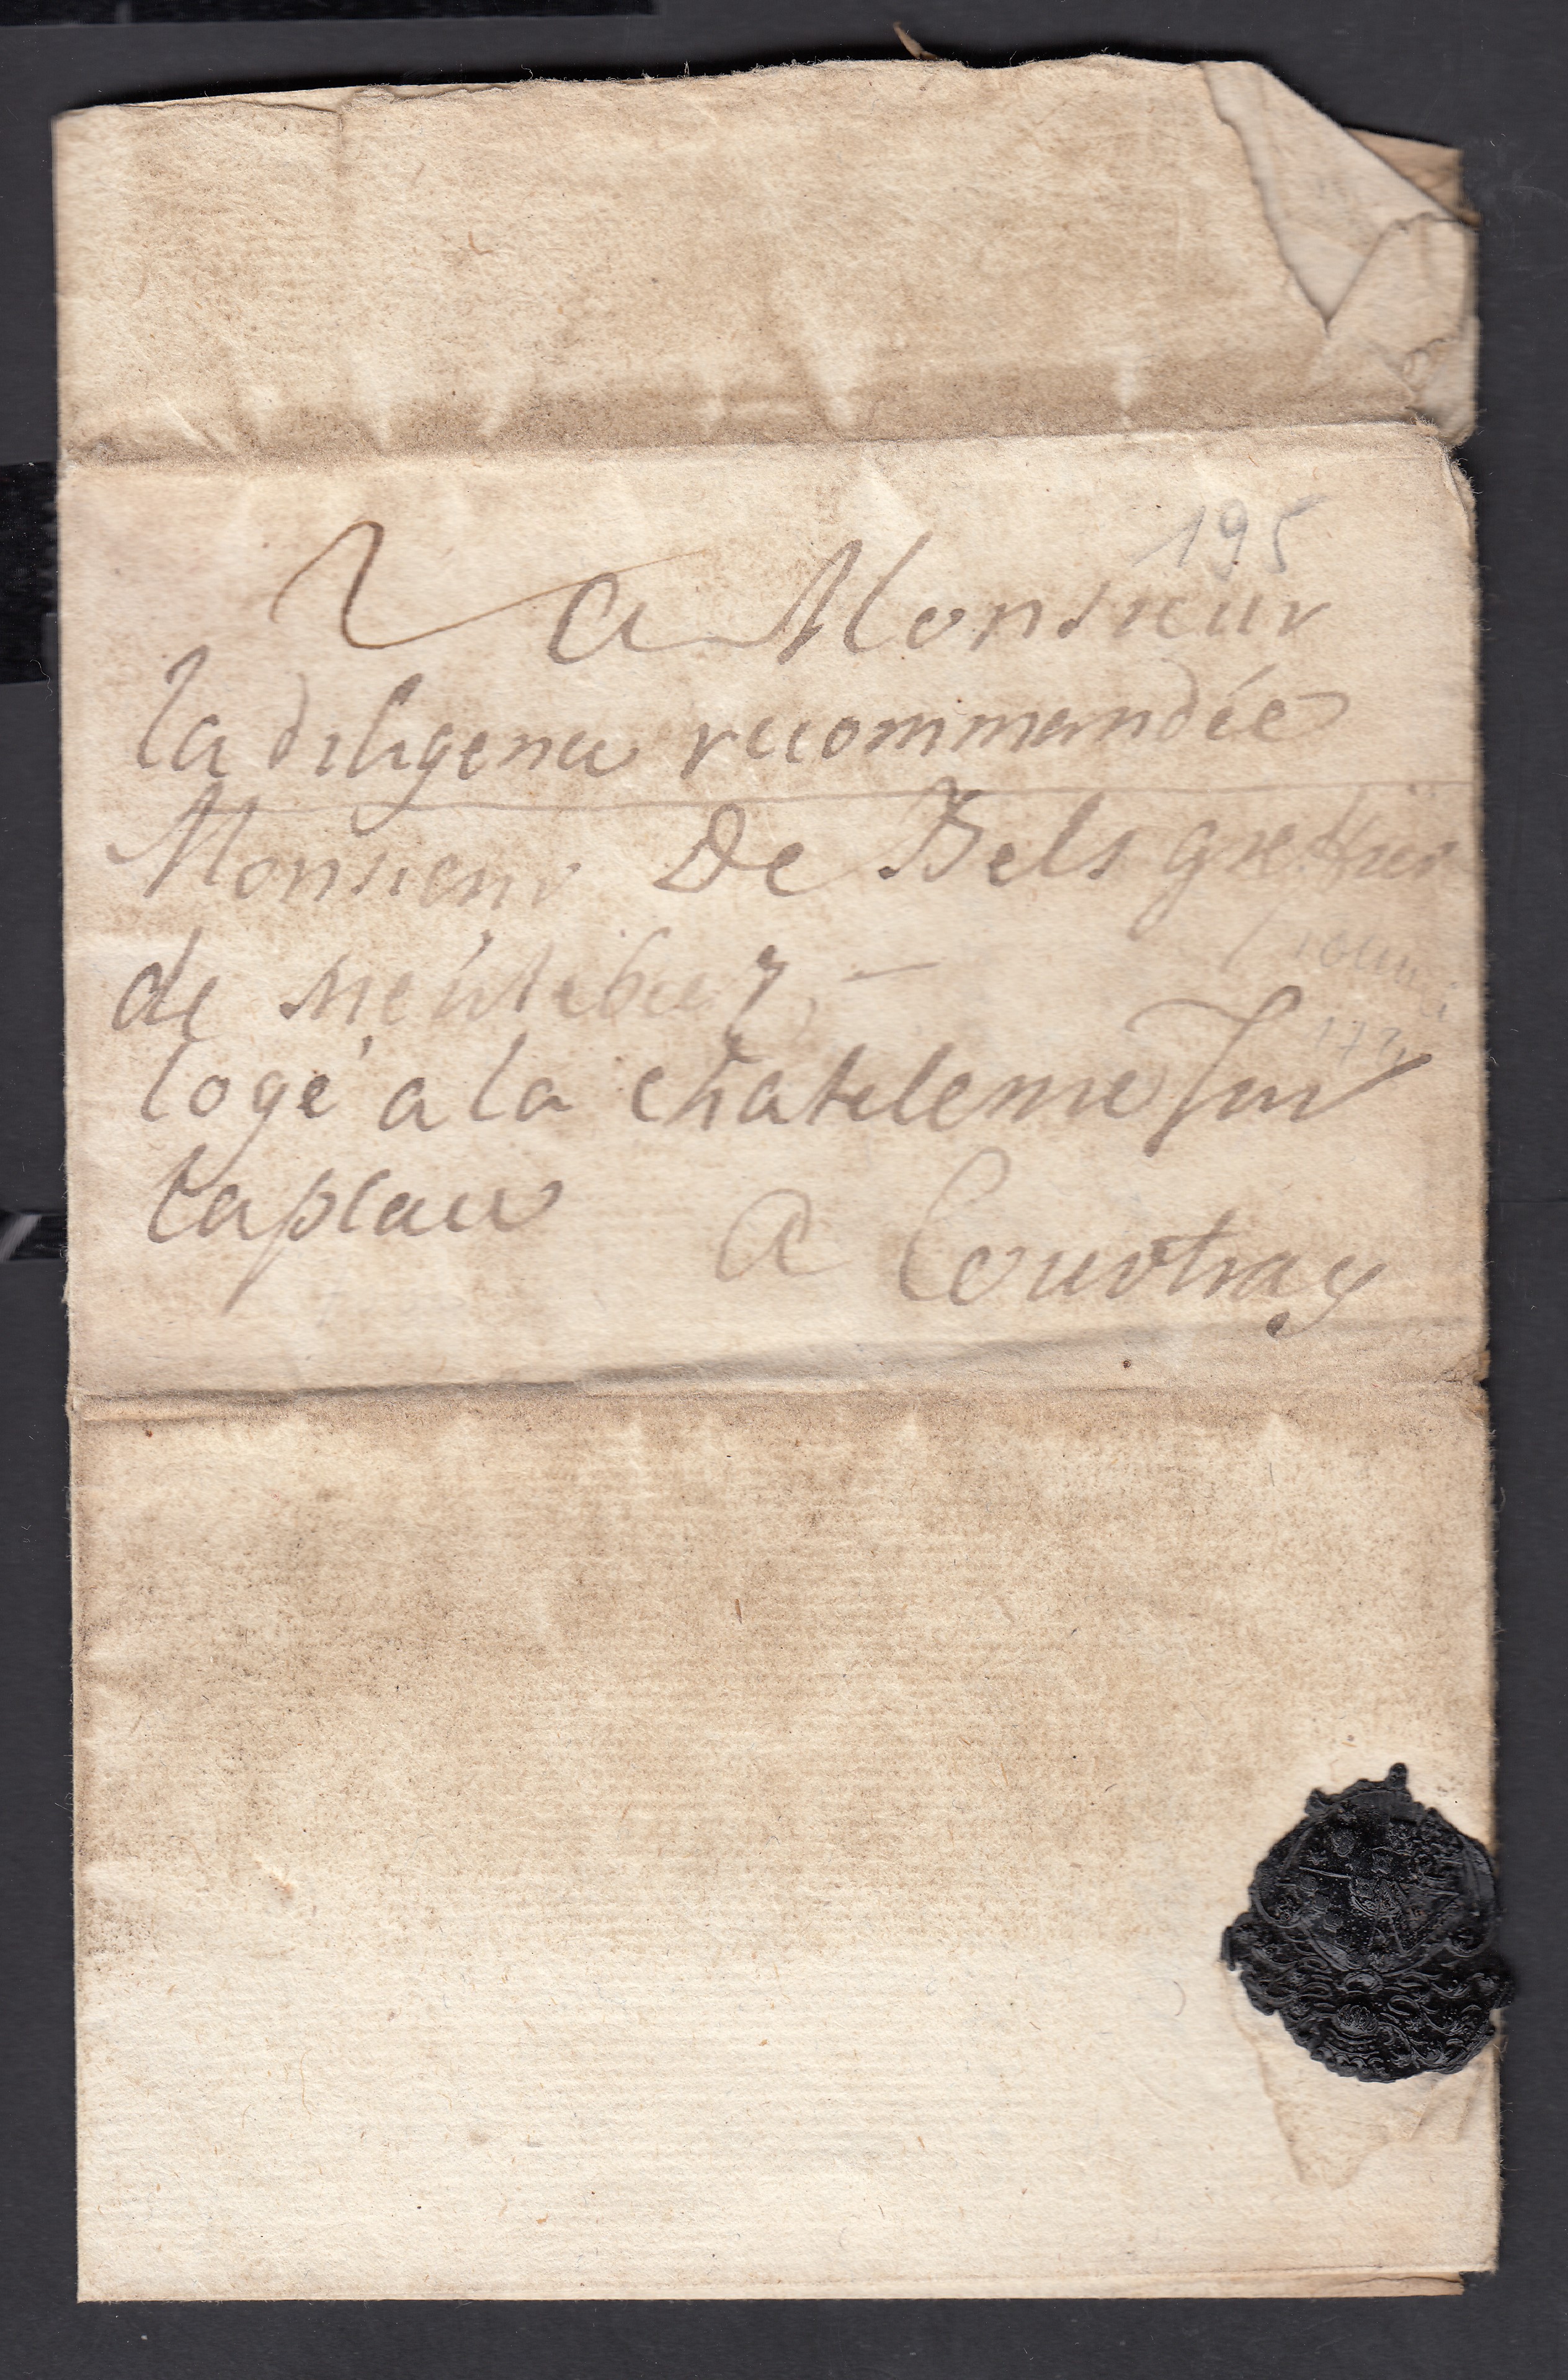 195
A Monsieur
la diligence recommandée
Monsieur De Bels greffier
de
logé a la chatelenie sur
la place
A Courtray